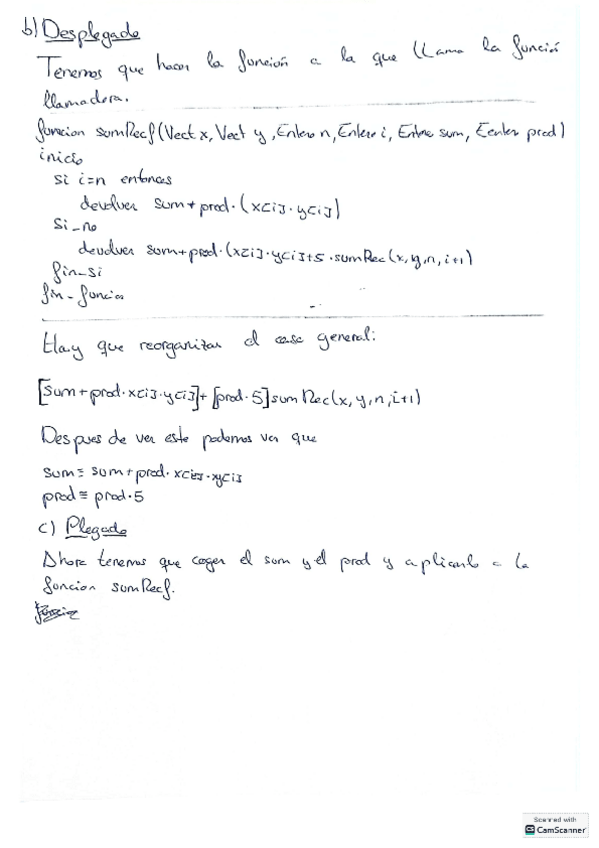 b) Desplegado
Tenemos que hacer la función a la que llama la función
llamadora.
funcion sumRecf(Vect x, Vect y, Entero n, Entero i, Entero sum, Eentero prod)
inicio
si i=n entonces
devolver sum+prod·(x[i]·y[i])
si_no
devolver sum+prod·(x[i]·y[i]+5·sumRec(x,y,n,i+1)
fin_si
fin_funcion
Hay que reorganizar el caso general:
[sum+prod·x[i]·y[i]]+[prod·5]sumRec(x,y,n,i+1)
Despues de ver este podemos ver que
sum ≡ sum+prod·x[i]·y[i]
prod ≡ prod·5
c) Plegado
Ahora tenemos que coger el sum y el prod y aplicarlo a la
funcion sumRecf.
funcion
Scanned with
CS CamScanner